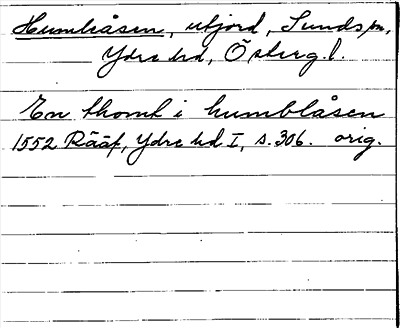 Humlåsen, utjord, Sunds sn,
Ydre hd, Österg. l.
En thomt i humblåsen
1552 Rääf, Ydre hd I, s. 306. orig.